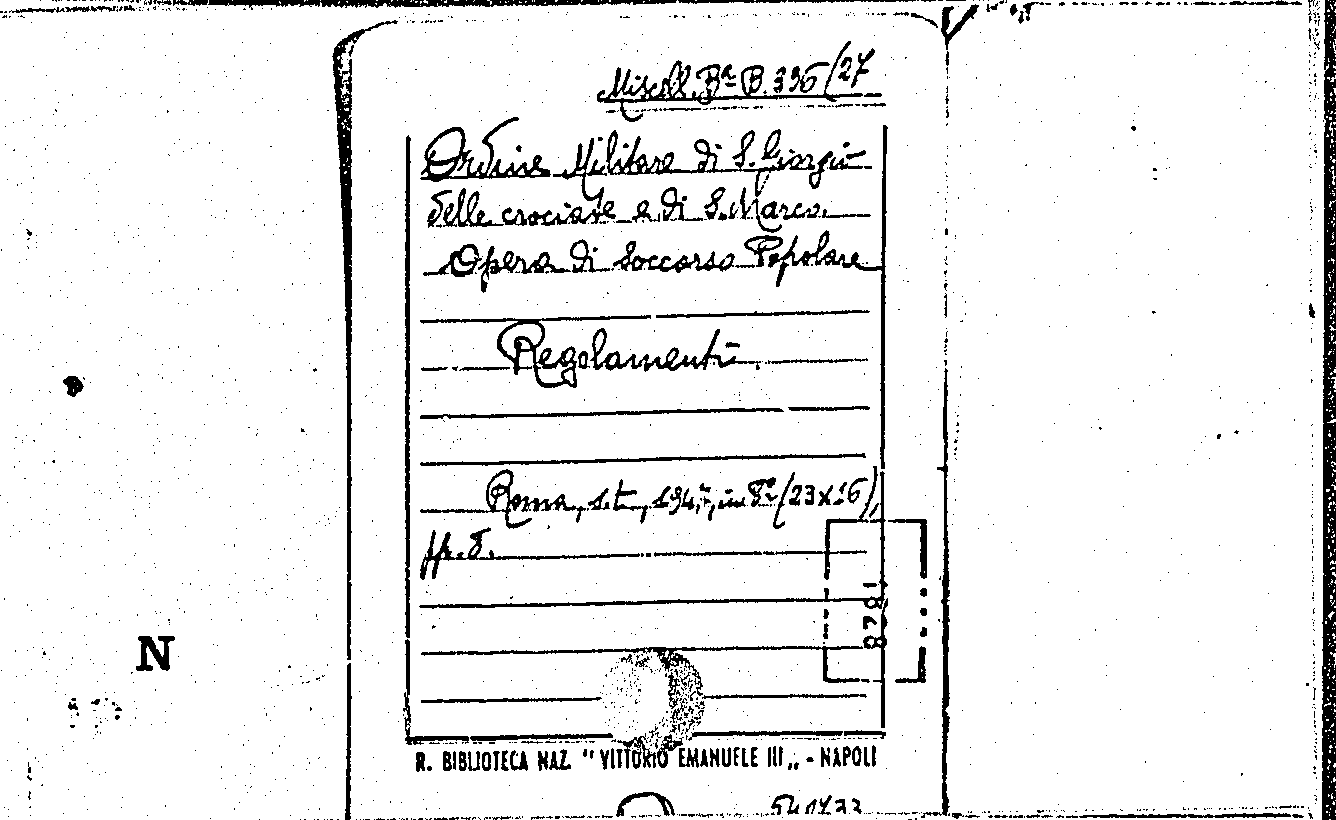 Miscell. Bª B. 396/27
Ordine Militare di S. Giorgio
delle crociate e di S. Marco.
Opera di Soccorso Popolare
Regolamenti.
Roma, s.t., in 8º (23x16),
pp. 8.
8781
N
R. BIBLIOTECA NAZ. "VITTORIO EMANUELE III„ - NAPOLI